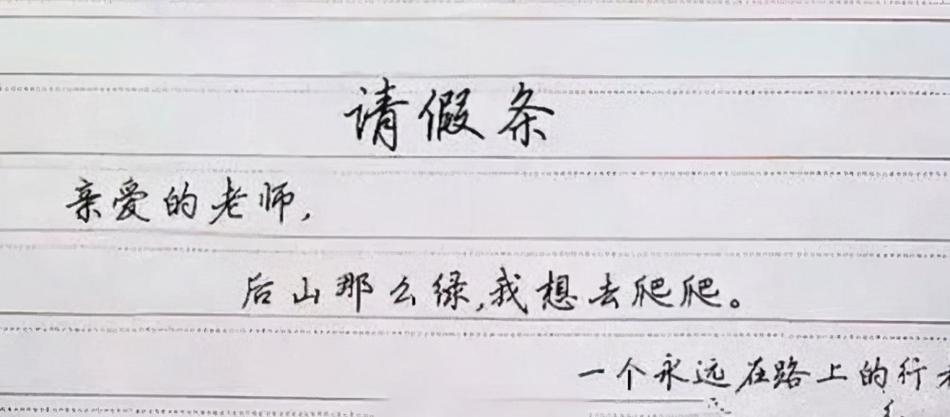 请假条
亲爱的老师,
后山那么绿,我想去爬爬。
一个永远在路上的行